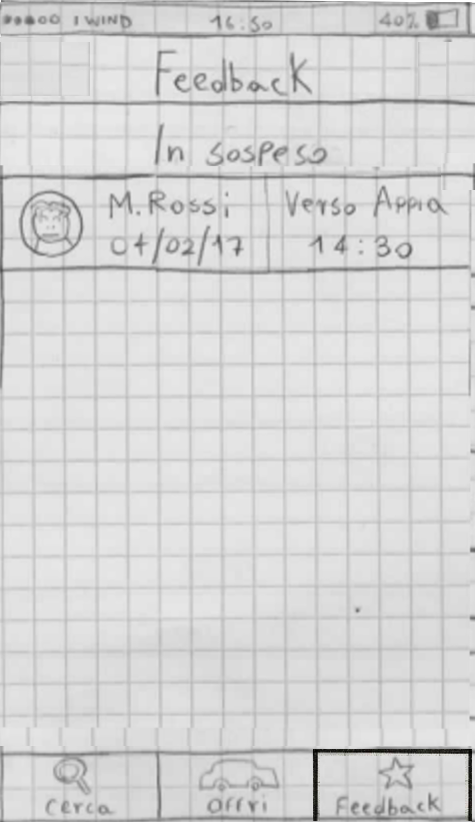 WIND 16:50 40%
Feedback
In sospeso
M. Rossi Verso Appia
04/02/17 14:30
Cerca Offri Feedback